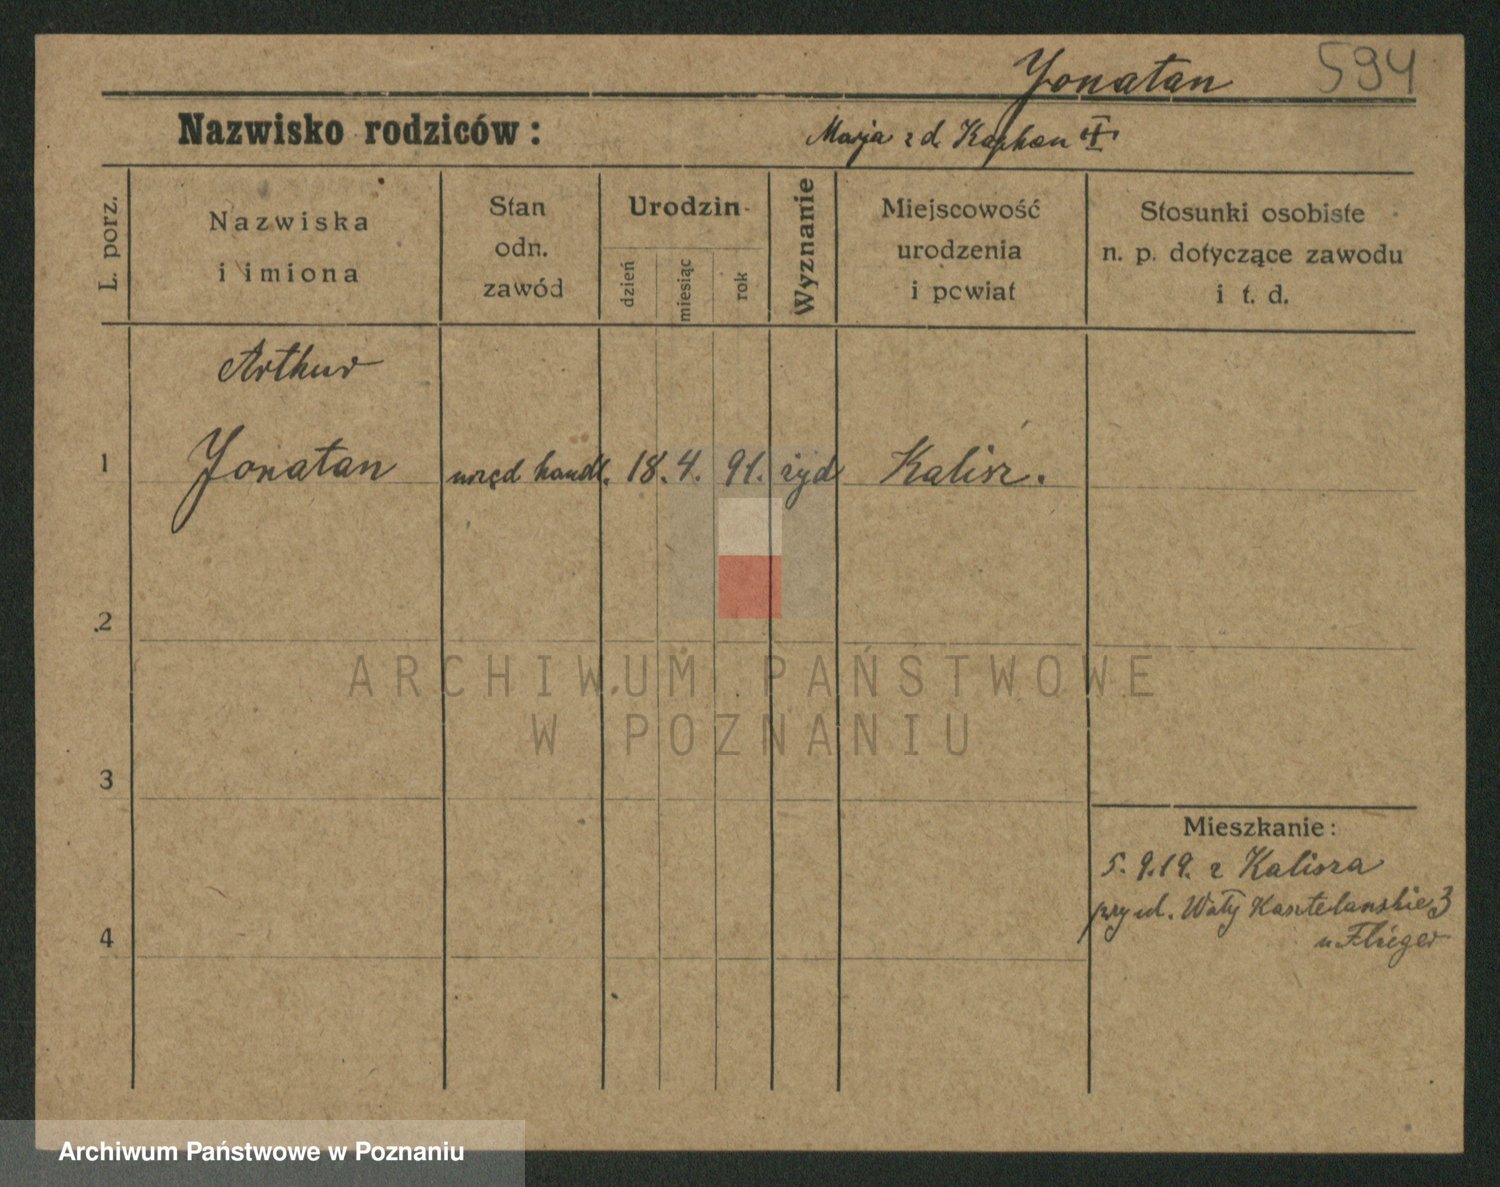 Jonatan 594
Nazwisko rodziców: Marja z d. Kaphan
L. porz.
Nazwiska
i imiona
Stan
odn.
zawód
Urodzin
dzień
miesiąc
rok
Wyznanie
Miejscowość
urodzenia
i powiat
Stosunki osobiste
n. p. dotyczące zawodu
i t. d.
Arthur
1 Jonatan urzęd handl. 18. 4. 91. żyd Kalisz.
2
ARCHIWUM PAŃSTWOWE
W POZNANIU
3
Mieszkanie:
5. 9.19. z Kalisza
przy ul. Wały Kasztelanskie 3
4
u Flieger
Archiwum Państwowe w Poznaniu